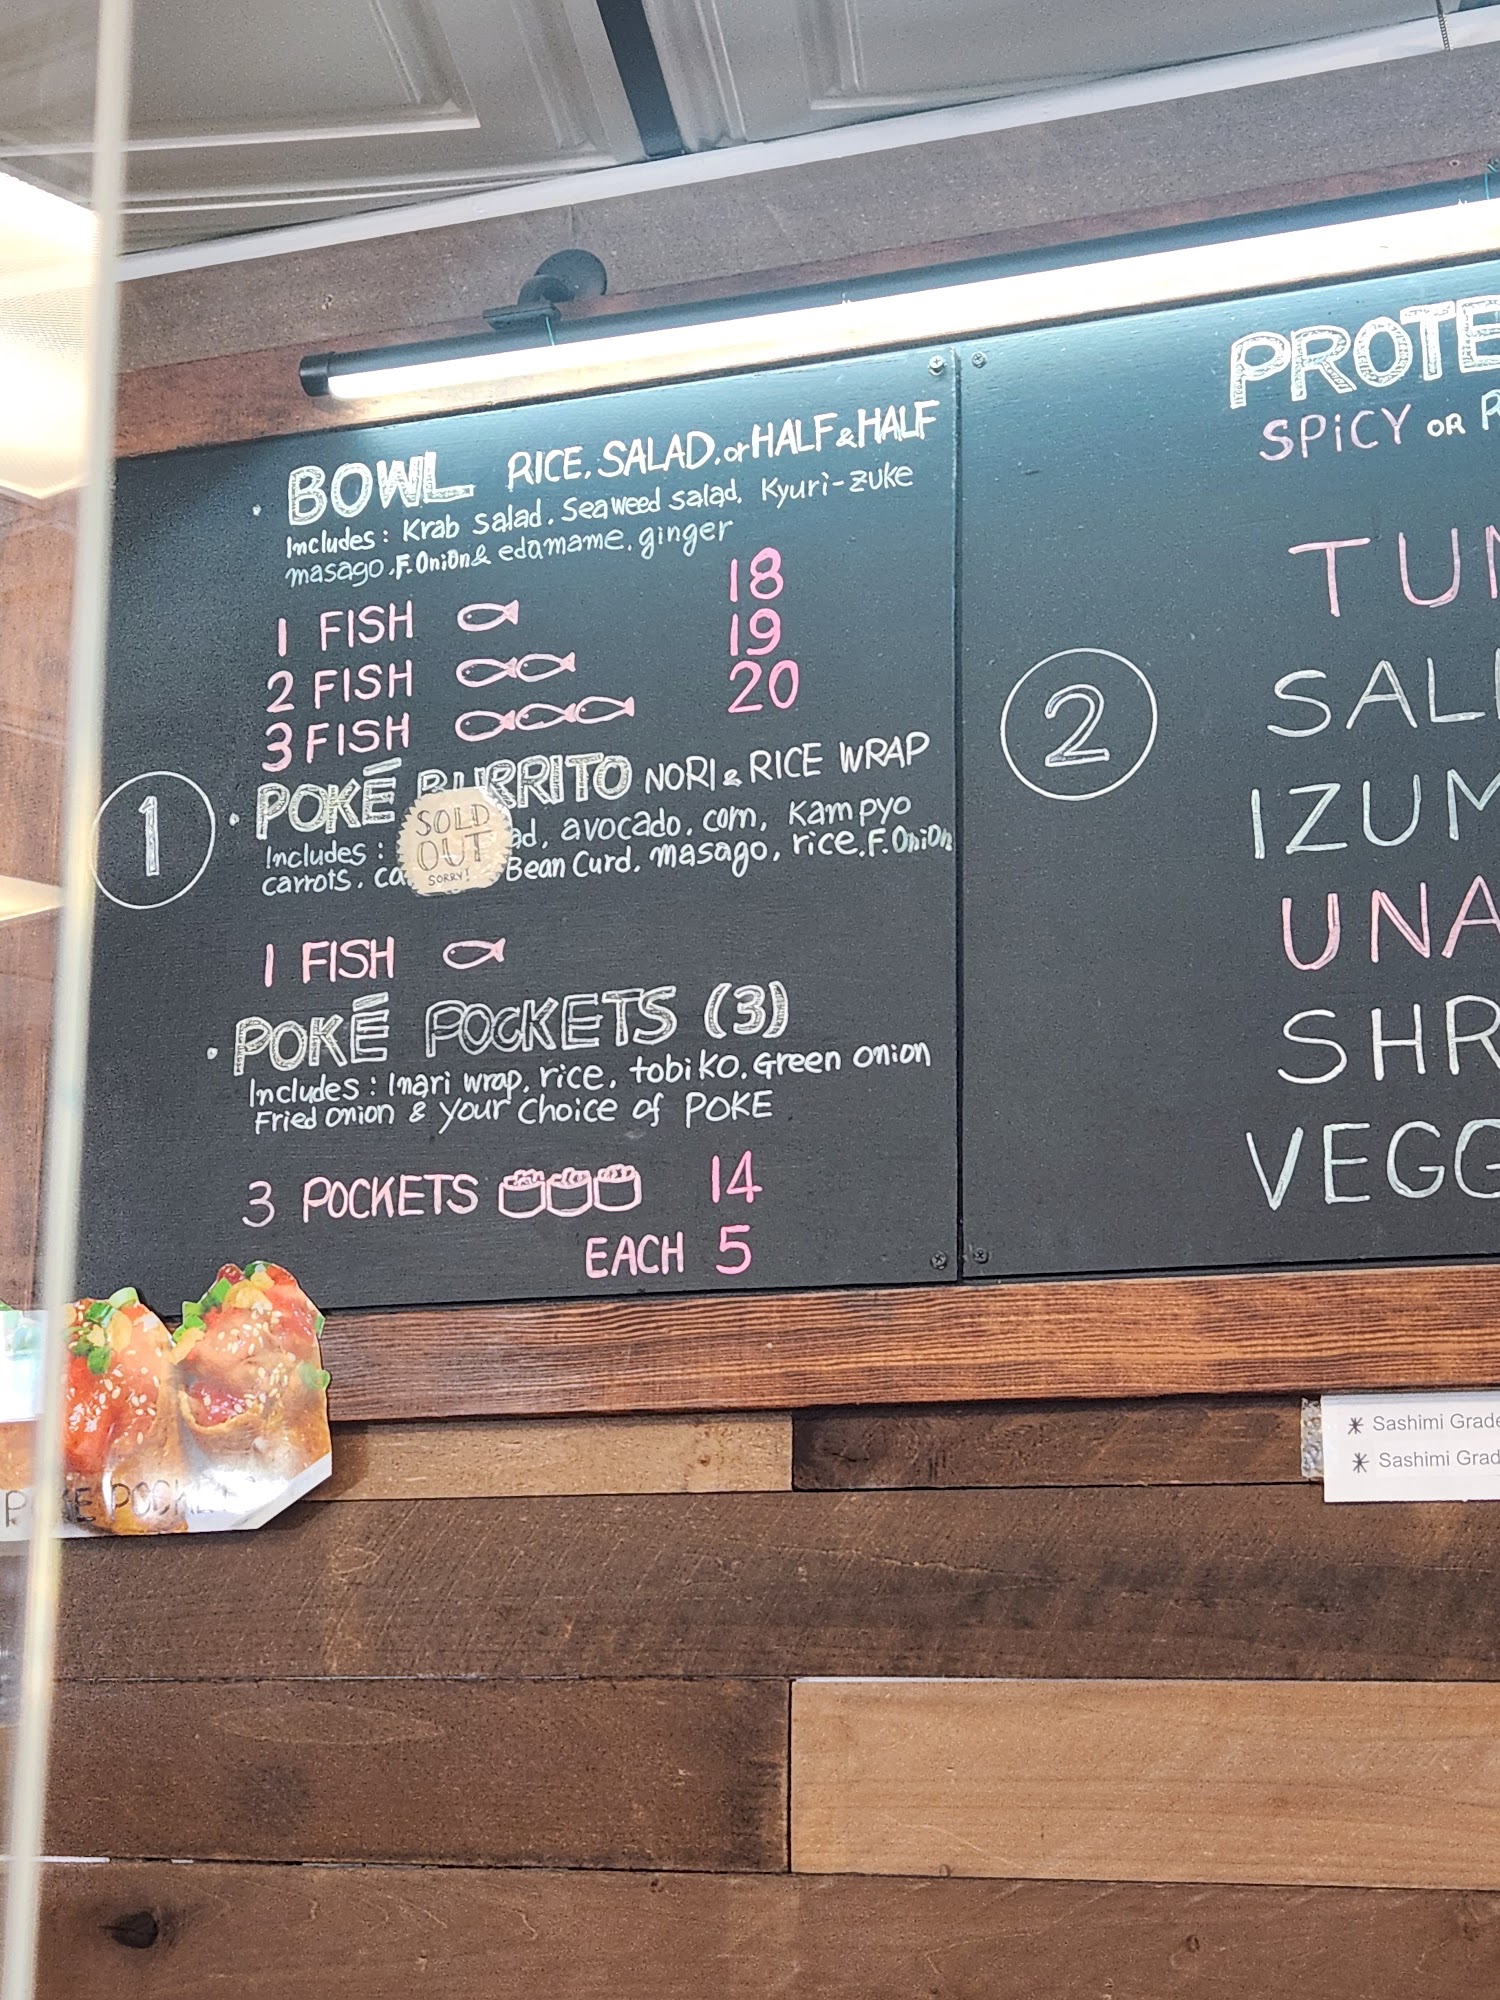 BOWL RICE, SALAD, or HALF & HALF
Includes: Krab Salad, Seaweed salad, Kyuri-zuke
masago, F.Onion & edamame, ginger
1 FISH 18
2 FISH 19
3 FISH 20
1
POKÉ BURRITO NORI & RICE WRAP
SOLD
OUT
SORRY!
Includes: avocado, corn, Kampyo
carrots, Bean Curd, masago, rice, F.Onion
1 FISH
POKÉ POCKETS (3)
Includes: Inari wrap, rice, tobiko, Green onion
Fried onion & your choice of POKE
3 POCKETS 14
EACH 5
POKE POCKET
PROTE
SPiCY OR
2
TUN
SAL
IZUM
UNA
SHR
VEGG
* Sashimi Grade
* Sashimi Grad